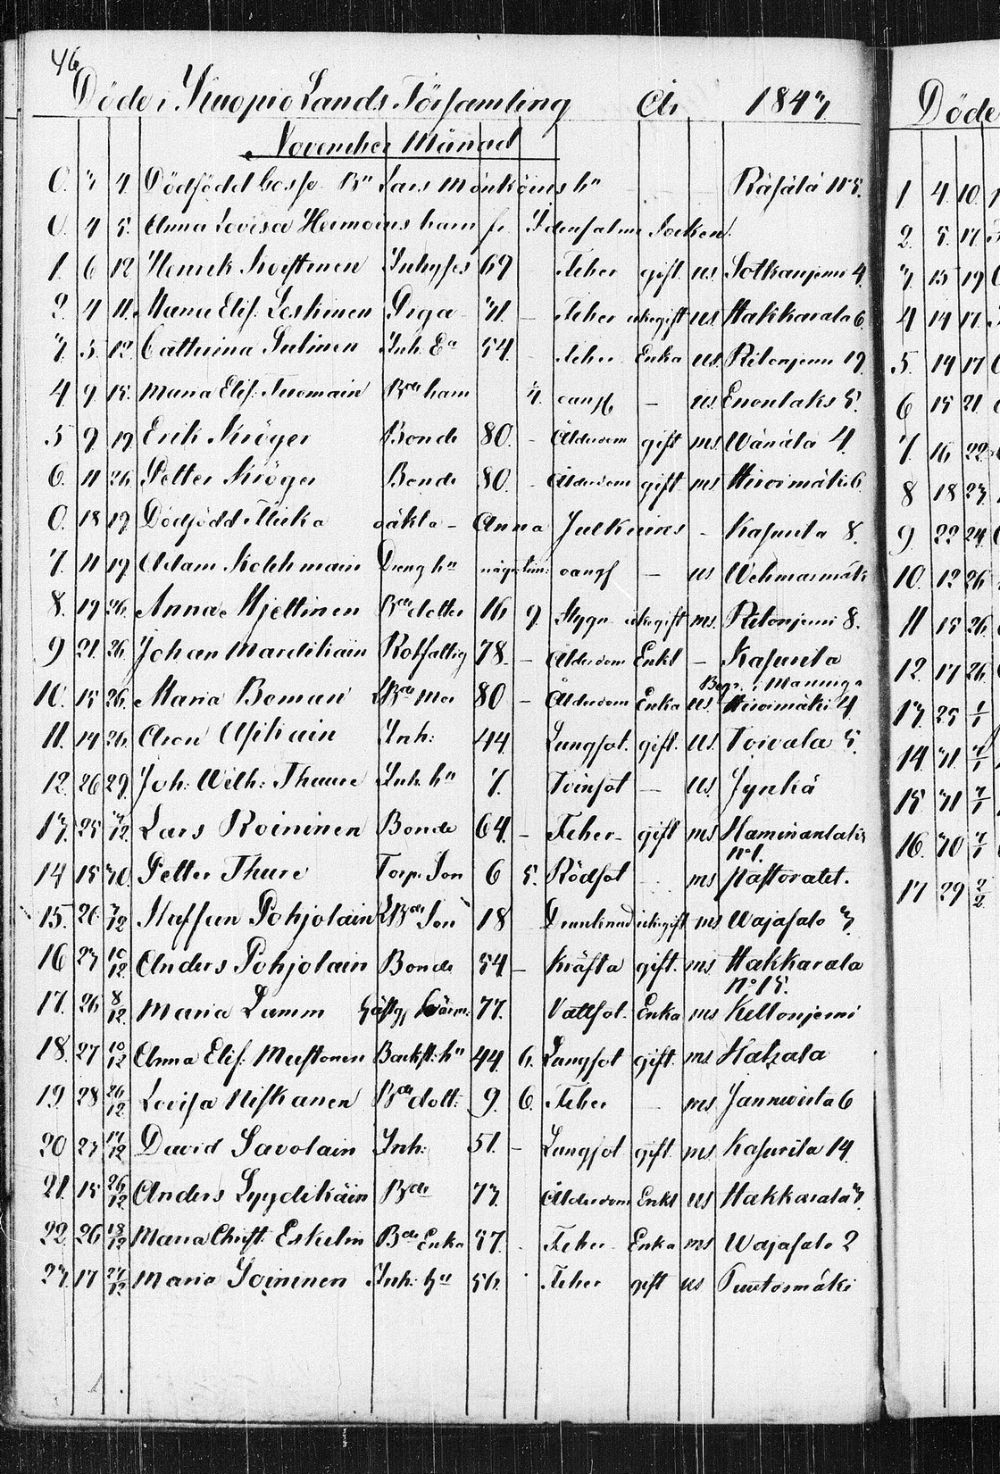 46
Döde i Kuopio Lands Församling År 1843
November Månad
0. 3 4. Dödfödd Gosse Bn Lars Mönköins hn Räsälä No 5.
0. 4 5. Anna Lovisa Hermoins barn fr. Idensalmi Socken.
1. 6 12 Henrik Inhyses 69 Feber gift us Sotkanjemi 4
2. 4 11. Maria Elis. Leskinen Piga 31 - Feber ickegift us Hakkarala 6.
3. 5. 12 Cathrina Julinen Inh. Ea 54. Feber Enka us. Ritonjemi 19
4 9 15. Maria Elis. Tuomain Bde barn 3. oangf - us. Enonlaks 5.
5 9 19 Erik Kröger Bonde 80. - Ålderdom gift ms Wänälä 4.
6. 11 26. Petter Kröger Bonde 80. - Ålderdom gift ms Hirvimäki 6.
0. 18 19 Dödfödd Flicka oäkta - Anna Julkuins - Kasurila 8.
7. 11 19 Adam Kohhmain Dräng hn några tim: oangf - us Wehmasmäki
8. 19 26. Anna Hjettinen Bde dotter 16 9. Stygn ickegift ms. Ritonjemi 8.
9 21. 26. Johan Mardikain Rotfattig 78. - Ålderdom Enkl - Kasurila
10. 15 26. Maria Boman Bde Mor 80 - Ålderdom Enka us. Hirvimäki 4
Begr. i Maaninga
11. 19 26. Aron Inh: 44 Lungsot. gift. us. Toivala 5.
12. 26 29. Joh: Wilh: Thuure Inh. hn 7. Tvinsot - us. Jynkä
13. 25 3/12 Lars Roininen Bonde 64. - Feber - gift ms Haminanlaks
No 1.
14 15 30. Petter Thure Torp. Son 6 5. Rödsot ms Pastoratet.
15. 26 3/12 Staffan Pohjolain Bde Son 18 Drunknad ickegift ms Wajasalo 3.
16 23 10/12 Anders Pohjolain Bonde 54 - Kräfta gift. ms Hakkarala
No 15.
17. 26 8/12 Maria Lamm 77. Vattsot. Enka ms Keltonjemi
18. 27 10/12 Anna Elis. Mustonen Backst: hn 44 6. Lungsot gift. ms Hatsala
19. 28 26/12 Lovisa Niskanen Bde dott: 9. 6. Feber - ms. Jannevirta 6
20 23 17/12 David Savolain Inh: 51. - Lungsot gift. ms Kasurila 14
21. 15 26/12 Anders Lyydikäin Bde 73. Ålderdom Enkl us Hakkarala 3.
22. 26 18/12 Maria Christ. Eskelin Bde Enka 57. - Feber Enka ms Wajasalo 2
23. 17 27/12 Maria Soininen Inh. hu 56. Feber gift us Tuutosmäki
Döde
1 4. 10.
2. 5. 17.
3. 15 19
4 14 17.
5. 14 17
6 15 21.
7. 16 22
8 18 23.
9. 22 24.
10. 12 26
11 15 26
12. 17 26
13. 25 1/1
14. 31. 1/1
15 31 7/1
16. 30 7/1
17 29 2/2